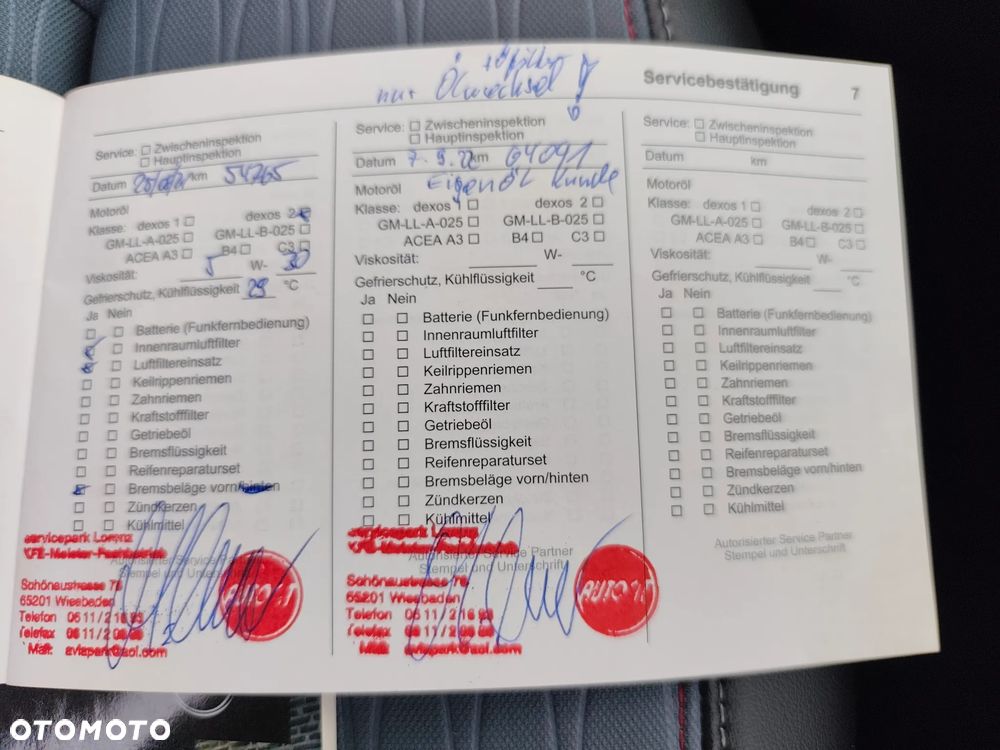 nur Ölwechsel !
Servicebestätigung 7
Service: Zwischeninspektion
Hauptinspektion
Datum /km 54765
Motoröl
Klasse: dexos 1 dexos 2
GM-LL-A-025 GM-LL-B-025
ACEA A3 B4 C3
Viskosität: 5 W- 30
Gefrierschutz, Kühlflüssigkeit 29 °C
Ja Nein
Batterie (Funkfernbedienung)
Innenraumluftfilter
Luftfiltereinsatz
Keilrippenriemen
Zahnriemen
Kraftstofffilter
Getriebeöl
Bremsflüssigkeit
Reifenreparaturset
Bremsbeläge vorn/hinten
Zündkerzen
Kühlmittel
Autorisierter Service Partner
Stempel und Unterschrift
servicepark Lorenz
KFZ-Meister-Fachbetrieb
Schönaustrasse 7
65201 Wiesbaden
Telefon 06 11 / 2
Telefax 06 11 / 2
Mail: aviapark@aol.com
AUTO
Service: Zwischeninspektion
Hauptinspektion
Datum 7. 9. 22 km 64091
Motoröl Eigenöl Kunde
Klasse: dexos 1 dexos 2
GM-LL-A-025 GM-LL-B-025
ACEA A3 B4 C3
Viskosität: W-
Gefrierschutz, Kühlflüssigkeit °C
Ja Nein
Batterie (Funkfernbedienung)
Innenraumluftfilter
Luftfiltereinsatz
Keilrippenriemen
Zahnriemen
Kraftstofffilter
Getriebeöl
Bremsflüssigkeit
Reifenreparaturset
Bremsbeläge vorn/hinten
Zündkerzen
Kühlmittel
Autorisierter Service Partner
Stempel und Unterschrift
servicepark Lorenz
Schönaustrasse 7
65201 Wiesbaden
Telefon 06 11 / 2
Telefax 06 11 / 2
Mail: aviapark@aol.com
AUTO
Service: Zwischeninspektion
Hauptinspektion
Datum km
Motoröl
Klasse: dexos 1 dexos 2
GM-LL-A-025 GM-LL-B-025
ACEA A3 B4 C3
Viskosität: W-
Gefrierschutz, Kühlflüssigkeit °C
Ja Nein
Batterie (Funkfernbedienung)
Innenraumluftfilter
Luftfiltereinsatz
Keilrippenriemen
Zahnriemen
Kraftstofffilter
Getriebeöl
Bremsflüssigkeit
Reifenreparaturset
Bremsbeläge vorn/hinten
Zündkerzen
Kühlmittel
Autorisierter Service Partner
Stempel und Unterschrift
OTOMOTO